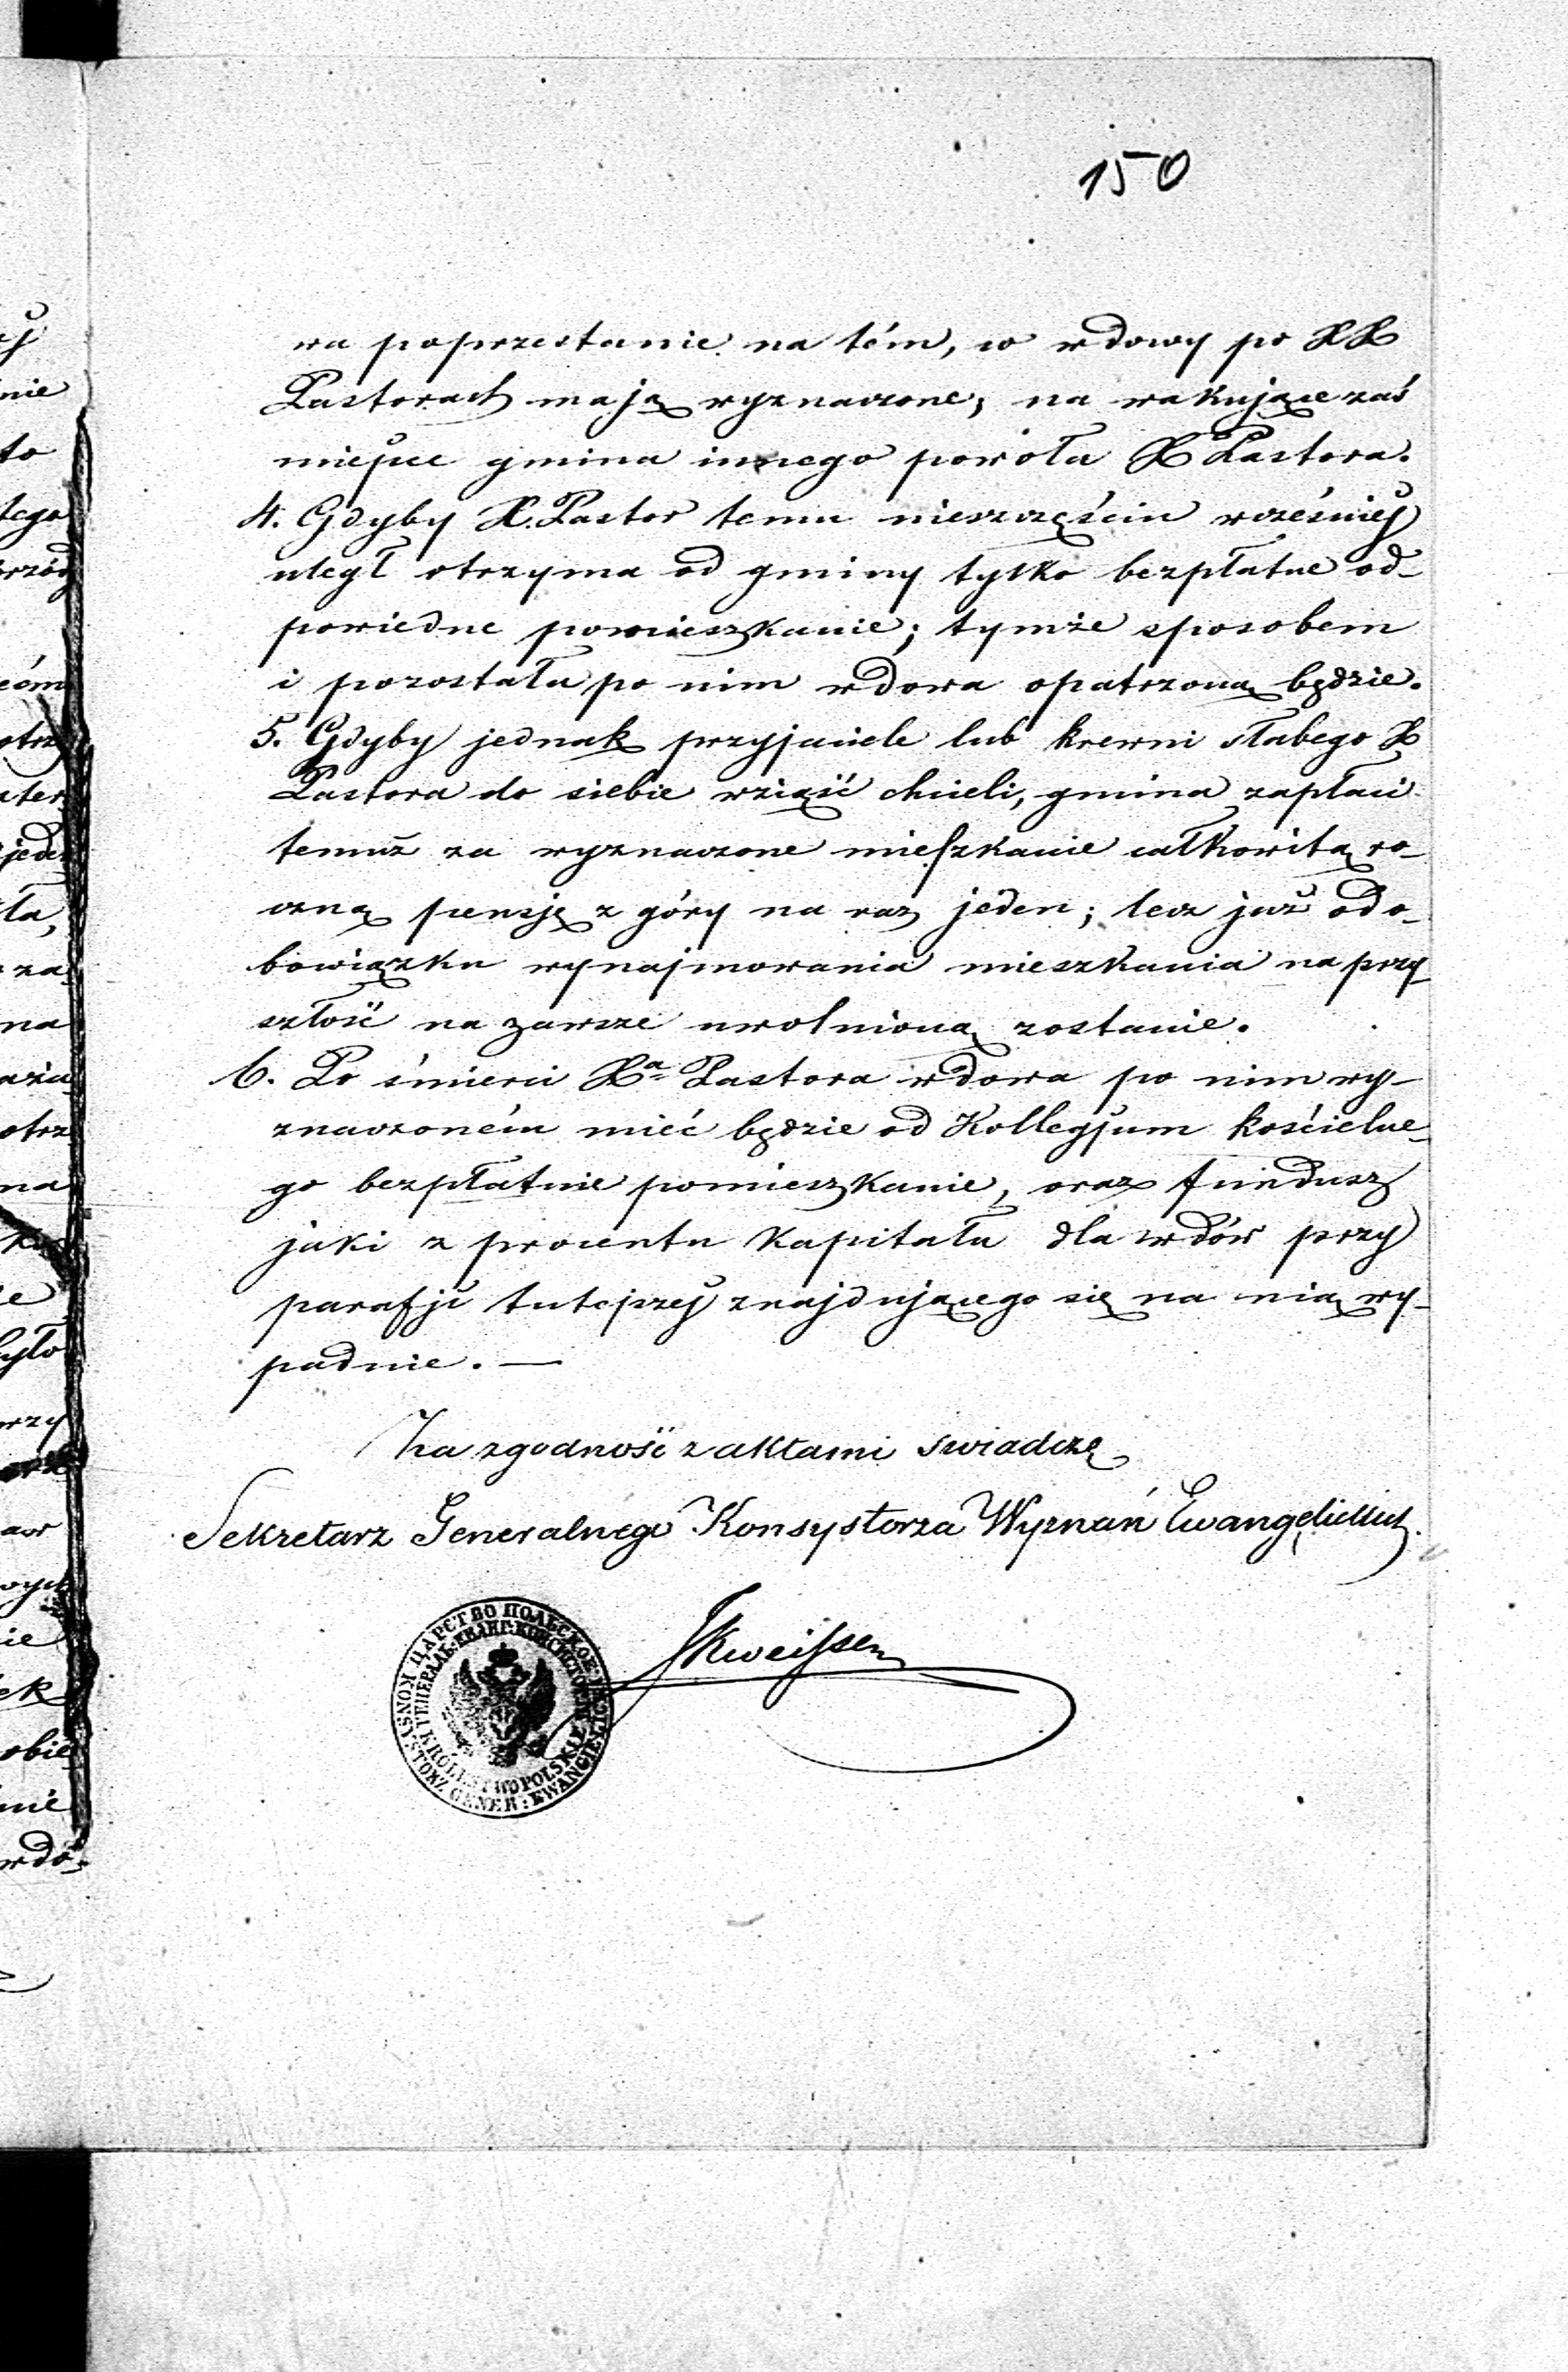 150
wa poprzestanie na tém, co wdowy po XX
Pastorach mają wyznaczone, na wakujące zaś
miejsce gmina innego powoła X Pastora.
4. Gdyby X. Pastor temu nieszczęściu wcześniej
uległ otrzyma od gminy tylko bezpłatne od-
powiedne pomieszkanie; tymże sposobem
i pozostała po nim wdowa opatrzoną będzie.
5. Gdyby jednak przyjaciele lub krewni słabego X
Pastora do siebie wziąść chcieli, gmina zapłaci
temuż za wyznaczone mieszkanie całkowitą ro-
czną pensję z góry na raz jeden; lecz już od o-
bowiązku wynajmowania mieszkania na przy-
szłość na zawsze uwolnioną zostanie.
6. Po śmierci Xa Pastora wdowa po nim wy-
znaczoném mieć będzie od Kollegjum kościelne-
go bezpłatnie pomieszkanie, oraz fundusz
jaki z procentu kapitału dla wdów przy
parafji tutejszej znajdującego się na nią wy-
padnie. —
Za zgodność z aktami swiadczę
Sekretarz Generalnego Konsystorza Wyznań Ewangelickich.
ЦАРСТВО ПОЛЬСКОЕ
ГЕНЕРАЛЬ: ЕВАНГ: КОНСИСТОРІЯ
KRÓLESTWO POLSKIE
KONSYSTORZ GENER: EWANGIELICKI